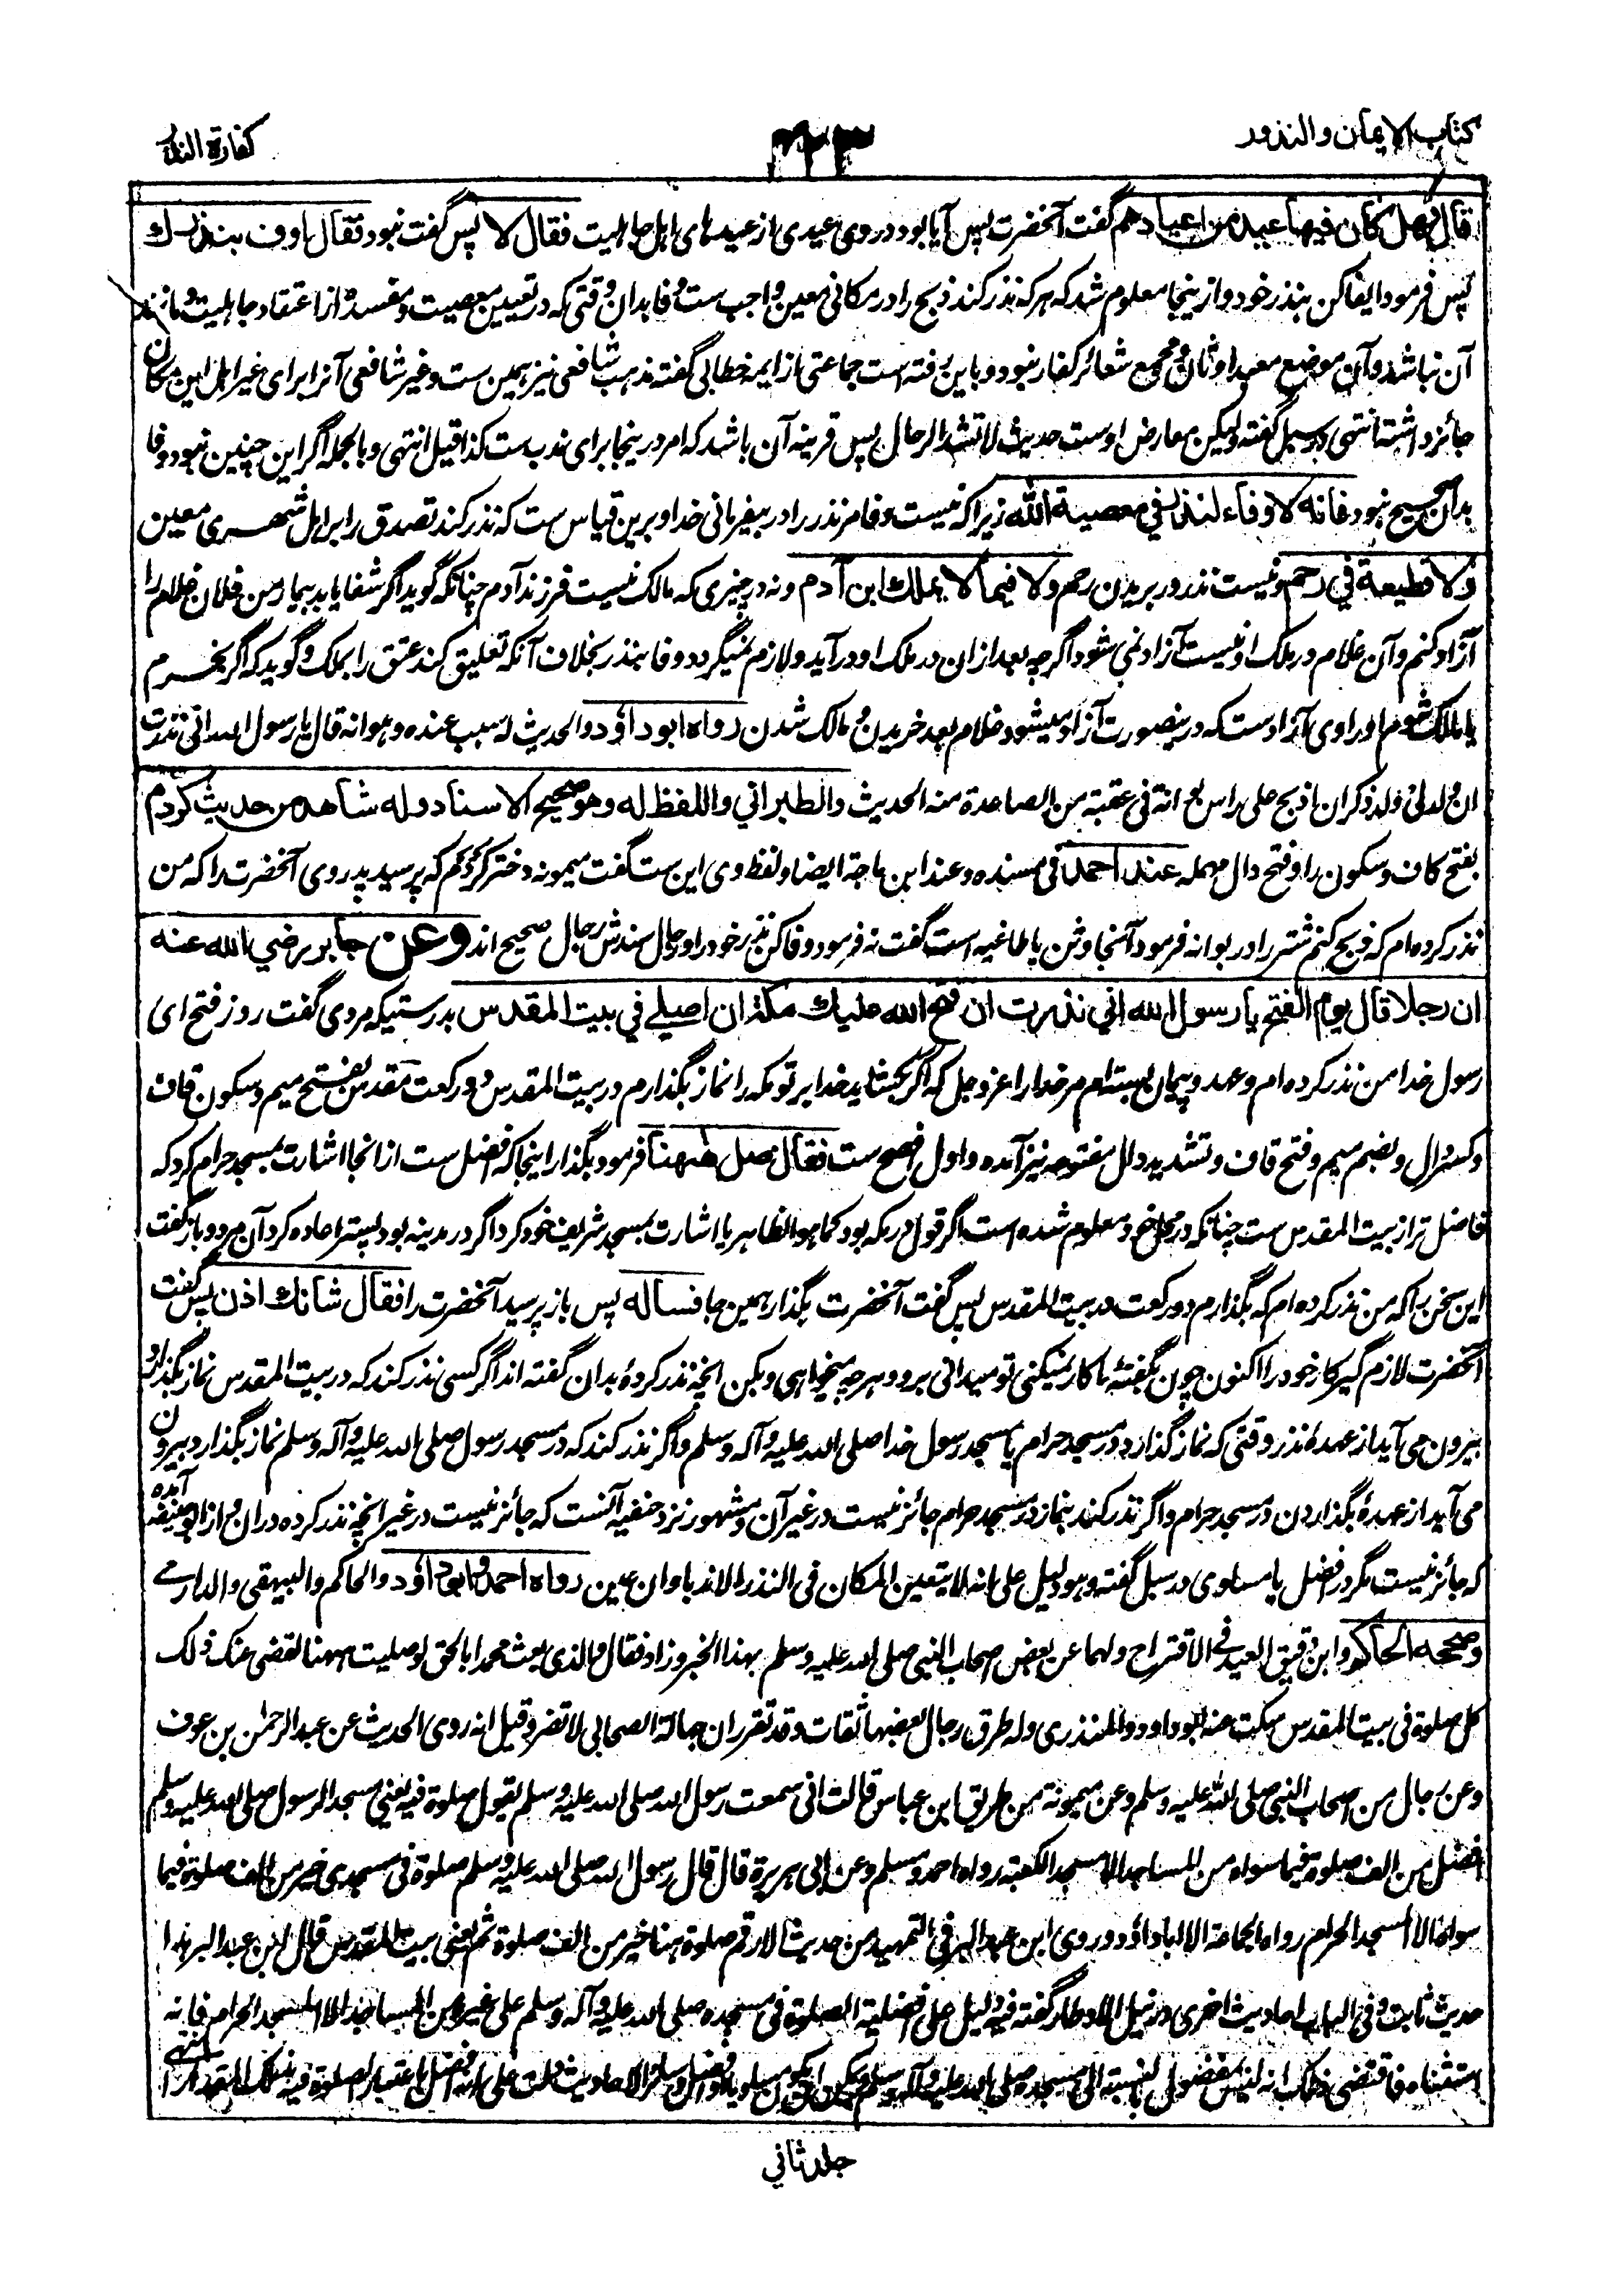 کتاب الایمان والنذور
۴۲۳
کفارة النذر
قال فهل کان فیها عید من اعیادهم گفت آنحضرت پس آیا بود در وی عیدی از عیدهای اهل جاهلیت فقال لا پس گفت نبود فقال اوف بنذرک
پس فرمود ایفا کن بنذر خود و ازینجا معلوم شد که هر که نذر کند ذبح را در مکانی معین واجب ست وفا بدان وقتی که در تعیین معصیت و مفسده از اعتقاد جاهلیت و مانند
آن نباشد و آن موضع معبد اوثان و مجمع شعائر کفار نبود و باین رفته است جماعتی از ایمه خطابی گفته مذهب شافعی نیز همین ست و غیر شافعی آنرا برای غیر اهل این مکان
جائز داشته انتهی در سبل گفته ولیکن معارض اوست حدیث لا تشد الرحال پس قرینه آن باشد که امر درینجا برای ندب ست کذا قیل انتهی و بالجمله اگر این چنین نبود وفا
بدان صحیح نبود فانه لا وفاء لنذر فی معصیة الله زیرا که نیست وفا مر نذر را در بیفرمانی خدا و برین قیاس ست که نذر کند تصدق را بر اهل شهری معین
ولا قطیعة فی رحم و نیست نذر در بریدن رحم ولا فیما لا یملک ابن آدم و نه در چیزی که مالک نیست فرزند آدم چنانکه گوید اگر شفا یابد بیمار من فلان غلام را
آزاد کنم و آن غلام در ملک او نیست آزاد نمی شود اگرچه بعد ازان در ملک او در آید و لازم نمیگردد وفا بنذر بخلاف آنکه تعلیق کند عتق را بملک و گوید که اگر بخرم
یا مالک شوم او را وی آزادست که درینصورت آزاد میشود غلام بعد خریدن و مالک شدن رواه ابو داؤد والحدیث له سبب عنده و هو انه قال یا رسول الله انی نذرت
ان ولد لی ولد ذکر ان اذبح علی راس بوانة فی عقبة من الصاعدة منه الحدیث والطبرانی واللفظ له وهو صحیح الاسناد وله شاهد من حدیث کردم
بفتح کاف و سکون را و فتح دال مهمله عند احمد فی مسنده و عند ابن ماجة ایضا و لفظ وی این ست گفت میمونه دختر کردم که پرسید پدر وی آنحضرت را که من
نذر کرده ام که ذبح کنم شتر را در بوانه فرمود آنجا وثن یا طاغیه است گفت نه فرمود وفا کن نذر خود را و رجال سندش رجال صحیح اند وعن جابر رضی الله عنه
ان رجلا قال یوم الفتح یا رسول الله انی نذرت ان فتح الله علیک مکة ان اصلی فی بیت المقدس بدرستیکه مردی گفت روز فتح ای
رسول خدا من نذر کرده ام و عهد و پیمان بسته ام مر خدا را عز و جل که اگر بکشاید خدا بر تو مکه را نماز بگذارم در بیت المقدس دو رکعت مقدس بفتح میم و سکون قاف
و کسر دال و بضم میم و فتح قاف و تشدید دال مفتوحه نیز آمده و اول افصح ست فقال صل ههنا فرمود بگذار اینجا که افضل ست از انجا اشارت بمسجد حرام کرد که
فاضل تر از بیت المقدس ست چنانکه در محل خود معلوم شده است اگر قول در مکه بود کما هو الظاهر یا اشارت بمسجد شریف خود کرد اگر در مدینه بود پستر اعاده کرد آن مرد و باز گفت
این سخن را که من نذر کرده ام که بگذارم دو رکعت در بیت المقدس پس گفت آنحضرت بگذار همین جا فساله پس باز پرسید آنحضرت را فقال شانک اذن پس گفت
آنحضرت لازم گیر کار خود را اکنون چون بگفتۀ ما کار نمیکنی تو میدانی برو و هر چه میخواهی و بکن انچه نذر کردۀ بدان گفته اند اگر کسی نذر کند که در بیت المقدس نماز بگذارد
بیرون می آید از عهدۀ نذر وقتی که نماز گذارد در مسجد حرام یا مسجد رسول خدا صلی الله علیه وآله وسلم و اگر نذر کند که در مسجد رسول صلی الله علیه وآله وسلم نماز بگذارد بیرون
می آید از عهدۀ بگذاردن در مسجد حرام و اگر نذر کند بنماز در مسجد حرام جائز نیست در غیر آن و مشهور نزد حنفیه آنست که جائز نیست در غیر انچه نذر کرده دران و از ابو حنیفه آمده
که جائز نیست مگر در افضل یا مساوی در سبل گفته وهو دلیل علی انه لا یتعین المکان فی النذر الا ندبا وان عین رواه احمد وابو داؤد والحاکم والبیهقی والدارمی
وصححه الحاکم وابن دقیق العید فی الاقتراح ولهما عن بعض اصحاب النبی صلی الله علیه وسلم بهذا الخبر وزاد فقال والذی بعث محمدا بالحق لو صلیت ههنا لقضی عنک ذلک
کل صلوة فی بیت المقدس سکت عنه ابو داود والمنذری وله طرق رجال بعضها ثقات وقد تقرر ان جهالة الصحابی لا تضر وقیل انه روی الحدیث عن عبد الرحمن بن عوف
وعن رجال من اصحاب النبی صلی الله علیه وسلم وعن میمونة من طریق ابن عباس قالت انی سمعت رسول الله صلی الله علیه وسلم یقول صلوة فیه یعنی مسجد الرسول صلی الله علیه وسلم
افضل من الف صلوة فیما سواه من المساجد الا مسجد الکعبة رواه احمد ومسلم وعن ابی هریرة قال قال رسول الله صلی الله علیه وسلم صلوة فی مسجدی خیر من الف صلوة فیما
سواه الا المسجد الحرام رواه الجماعة الا ابا داؤد وروی ابن عبد البر فی التمهید من حدیث الارقم صلوة هنا خیر من الف صلوة ثم یعنی بیت المقدس قال ابن عبد البر هذا
حدیث ثابت وفی الباب احادیث اخری در نیل الاوطار گفته فیه دلیل علی افضلیة الصلوة فی مسجده صلی الله علیه وآله وسلم علی غیره من المساجد الا المسجد الحرام فانه
استثناه فاقتضی ذلک انه لیس بمفضول بالنسبة الی مسجده صلی الله علیه وآله وسلم ویمکن ان یکون مساویا او افضل وسائر الاحادیث دلت علی انه افضل باعتبار الصلوة فیه بذلک المقدار انتهی
جلد ثانی